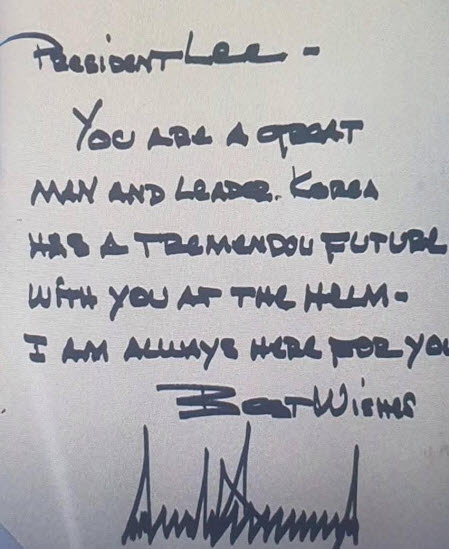 PRESIDENT LEE -
YOU ARE A GREAT
MAN AND LEADER. KOREA
HAS A TREMENDOU FUTURE
WITH YOU AT THE HELM -
I AM ALWAYS HERE FOR YOU
BEST WISHES